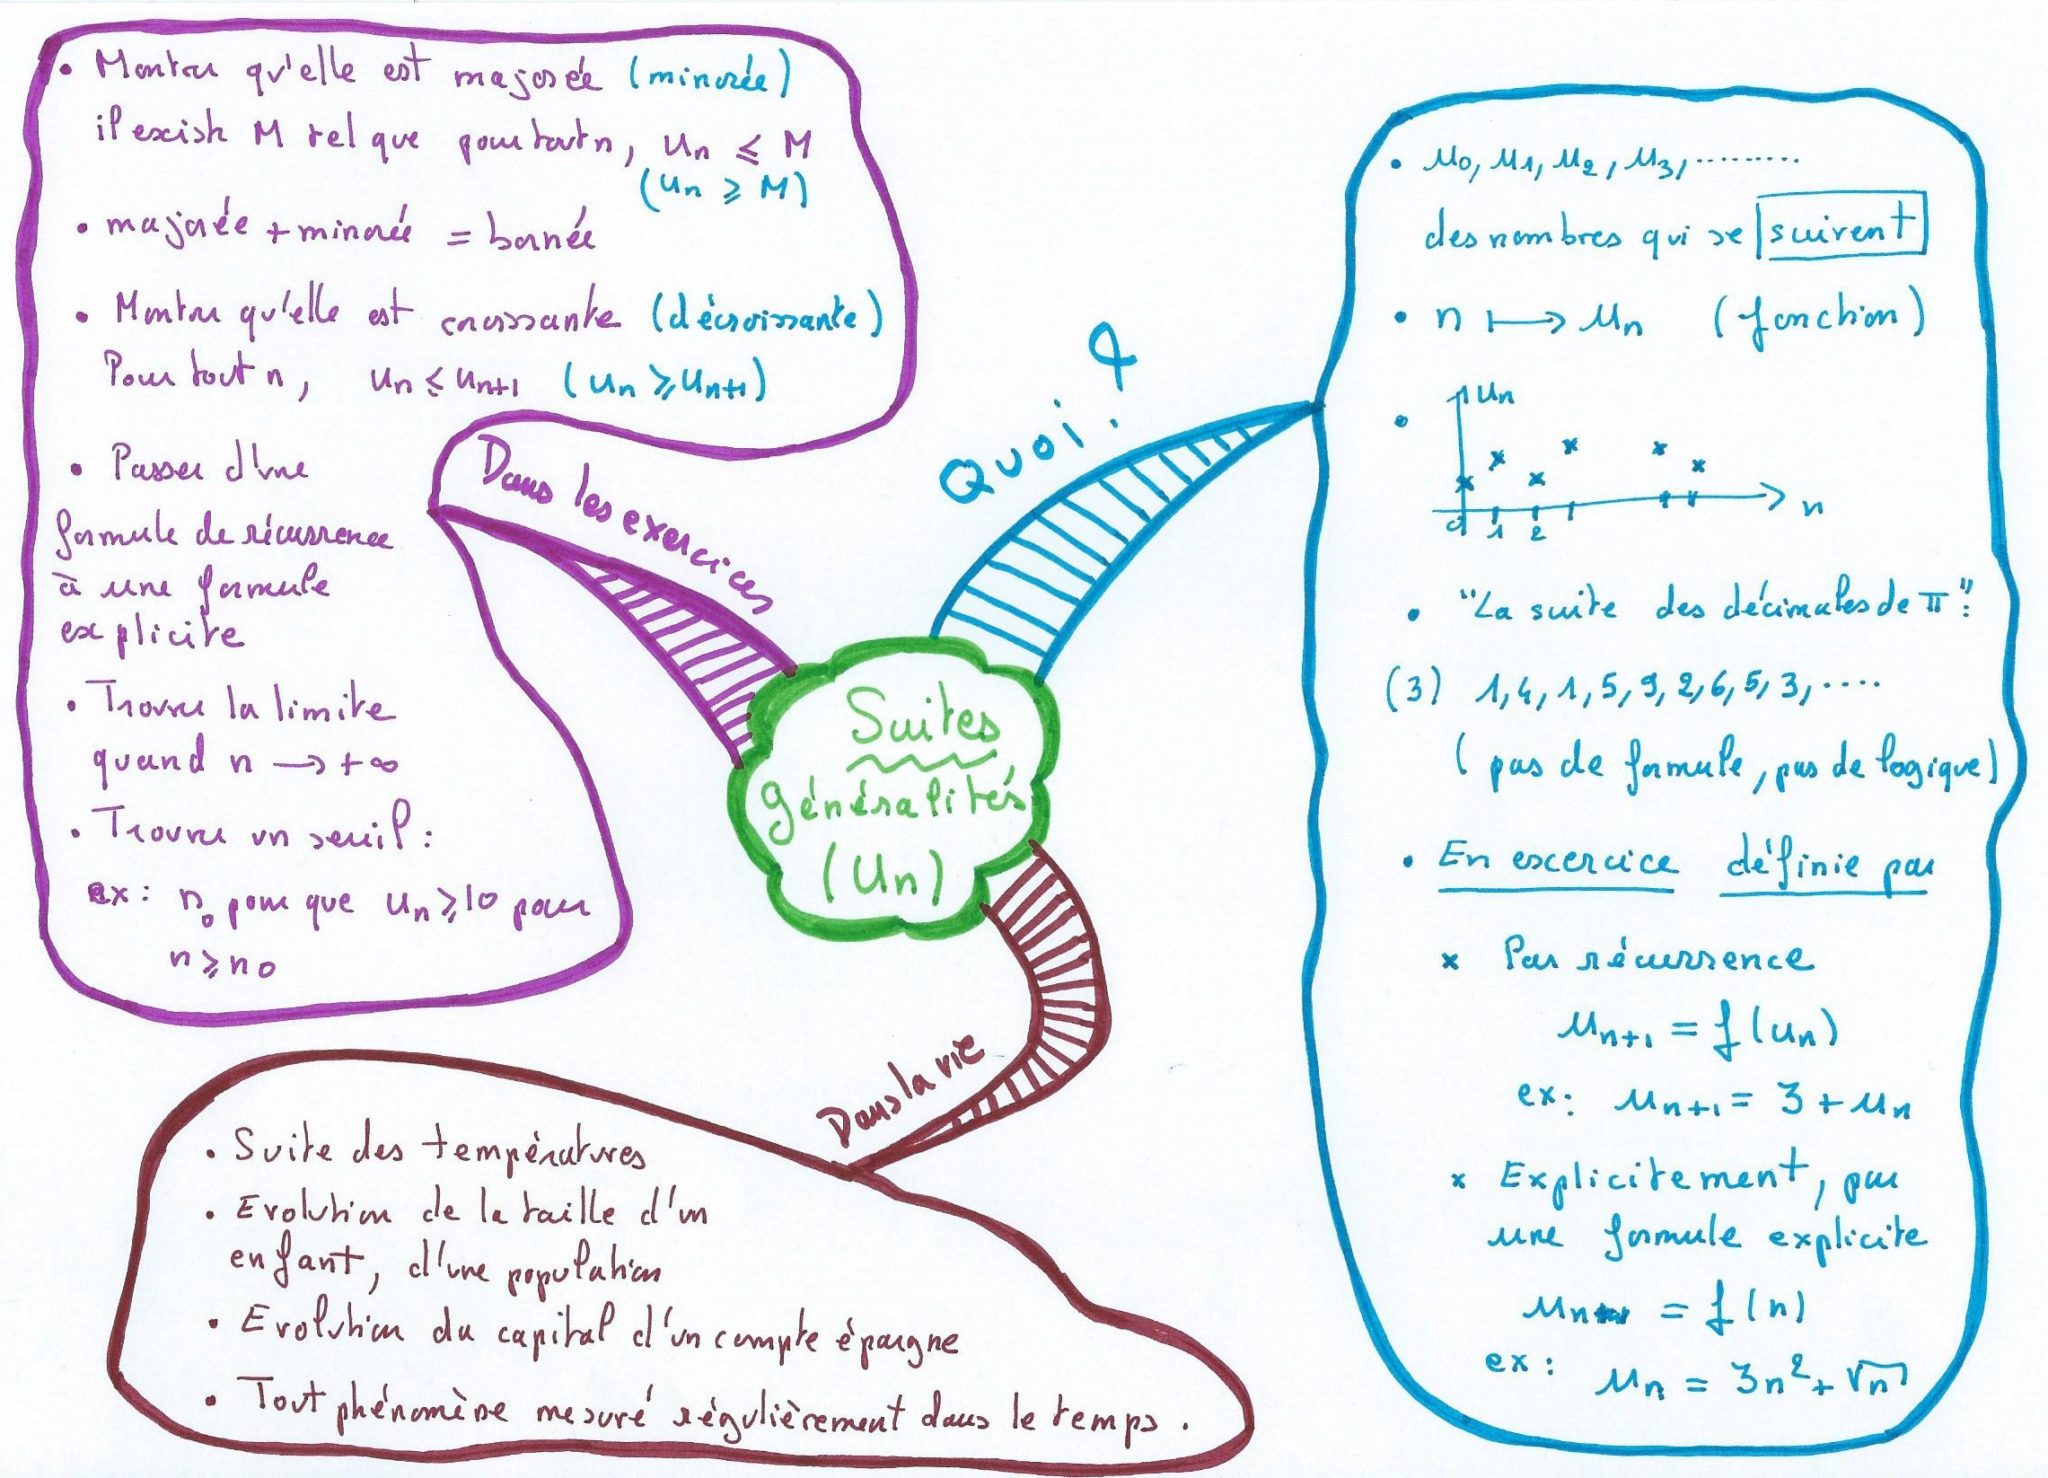 Suites
généralités
(Un)
Dans les exercices
• Montrer qu'elle est majorée (minorée)
il existe M tel que pour tout n, un ≤ M
(un ≥ M)
• majorée + minorée = bornée
• Montrer qu'elle est croissante (décroissante)
Pour tout n, un ≤ un+1 (un ≥ un+1)
• Passer d'une
formule de récurrence
à une formule
explicite
• Trouver la limite
quand n → +∞
• Trouver un seuil :
ex : n0 pour que un ≥ 10 pour
n ≥ n0
Quoi ?
• u0, u1, u2, u3, ..........
des nombres qui se suivent
• n ↦ un (fonction)
• un
0 1 2 n
• "La suite des décimales de π":
(3) 1, 4, 1, 5, 9, 2, 6, 5, 3, ....
(pas de formule, pas de logique)
• En excercice définie par
x Par récurrence
un+1 = f(un)
ex : un+1 = 3 + un
x Explicitement, par
une formule explicite
un = f(n)
ex : un = 3n² + √n
Dans la vie
• Suite des températures
• Evolution de la taille d'un
enfant, d'une population
• Evolution du capital d'un compte épargne
• Tout phénomène mesuré régulièrement dans le temps.